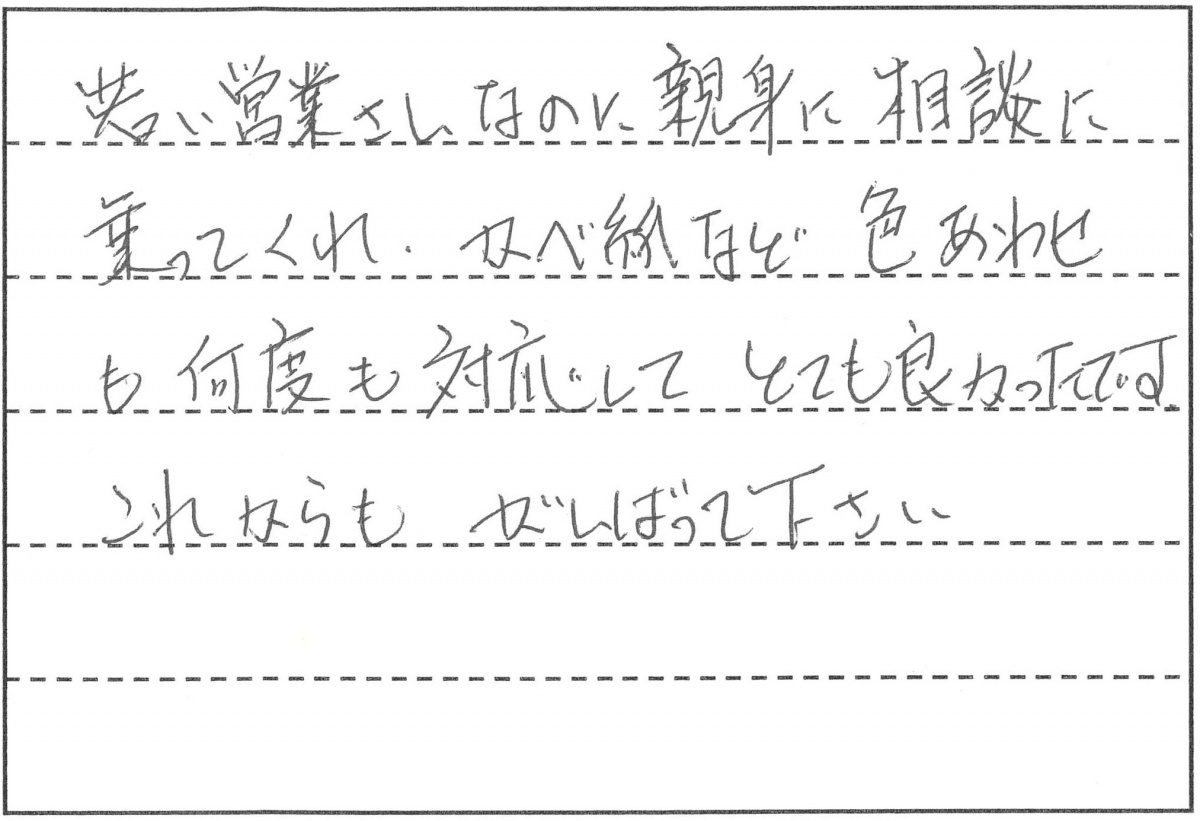 若い営業さんなのに親身に相談に
乗ってくれ、かべ紙など色あわせ
も何度も対応してとても良かったです。
これからもがんばって下さい